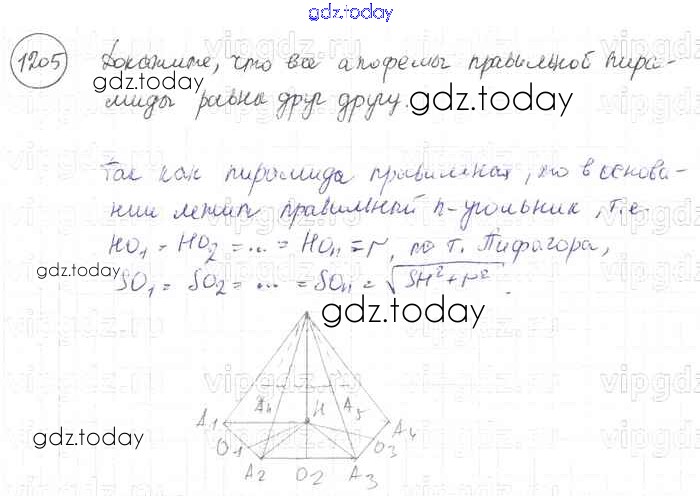 gdz.today
1205 Докажите, что все апофемы правильной пира-
gdz.today
миды равны друг другу.
gdz.today
Так как пирамида правильная, то в основа-
нии лежит правильный n-угольник, т.е.
HO₁ = HO₂ = ... = HOₙ = r, по т. Пифагора,
gdz.today
SO₁ = SO₂ = ... = SOₙ = √SH² + r².
gdz.today
A₁ A₆ H A₅ A₄
gdz.today
O₁ O₃
A₂ O₂ A₃
gdz.today
vipgdz.ru